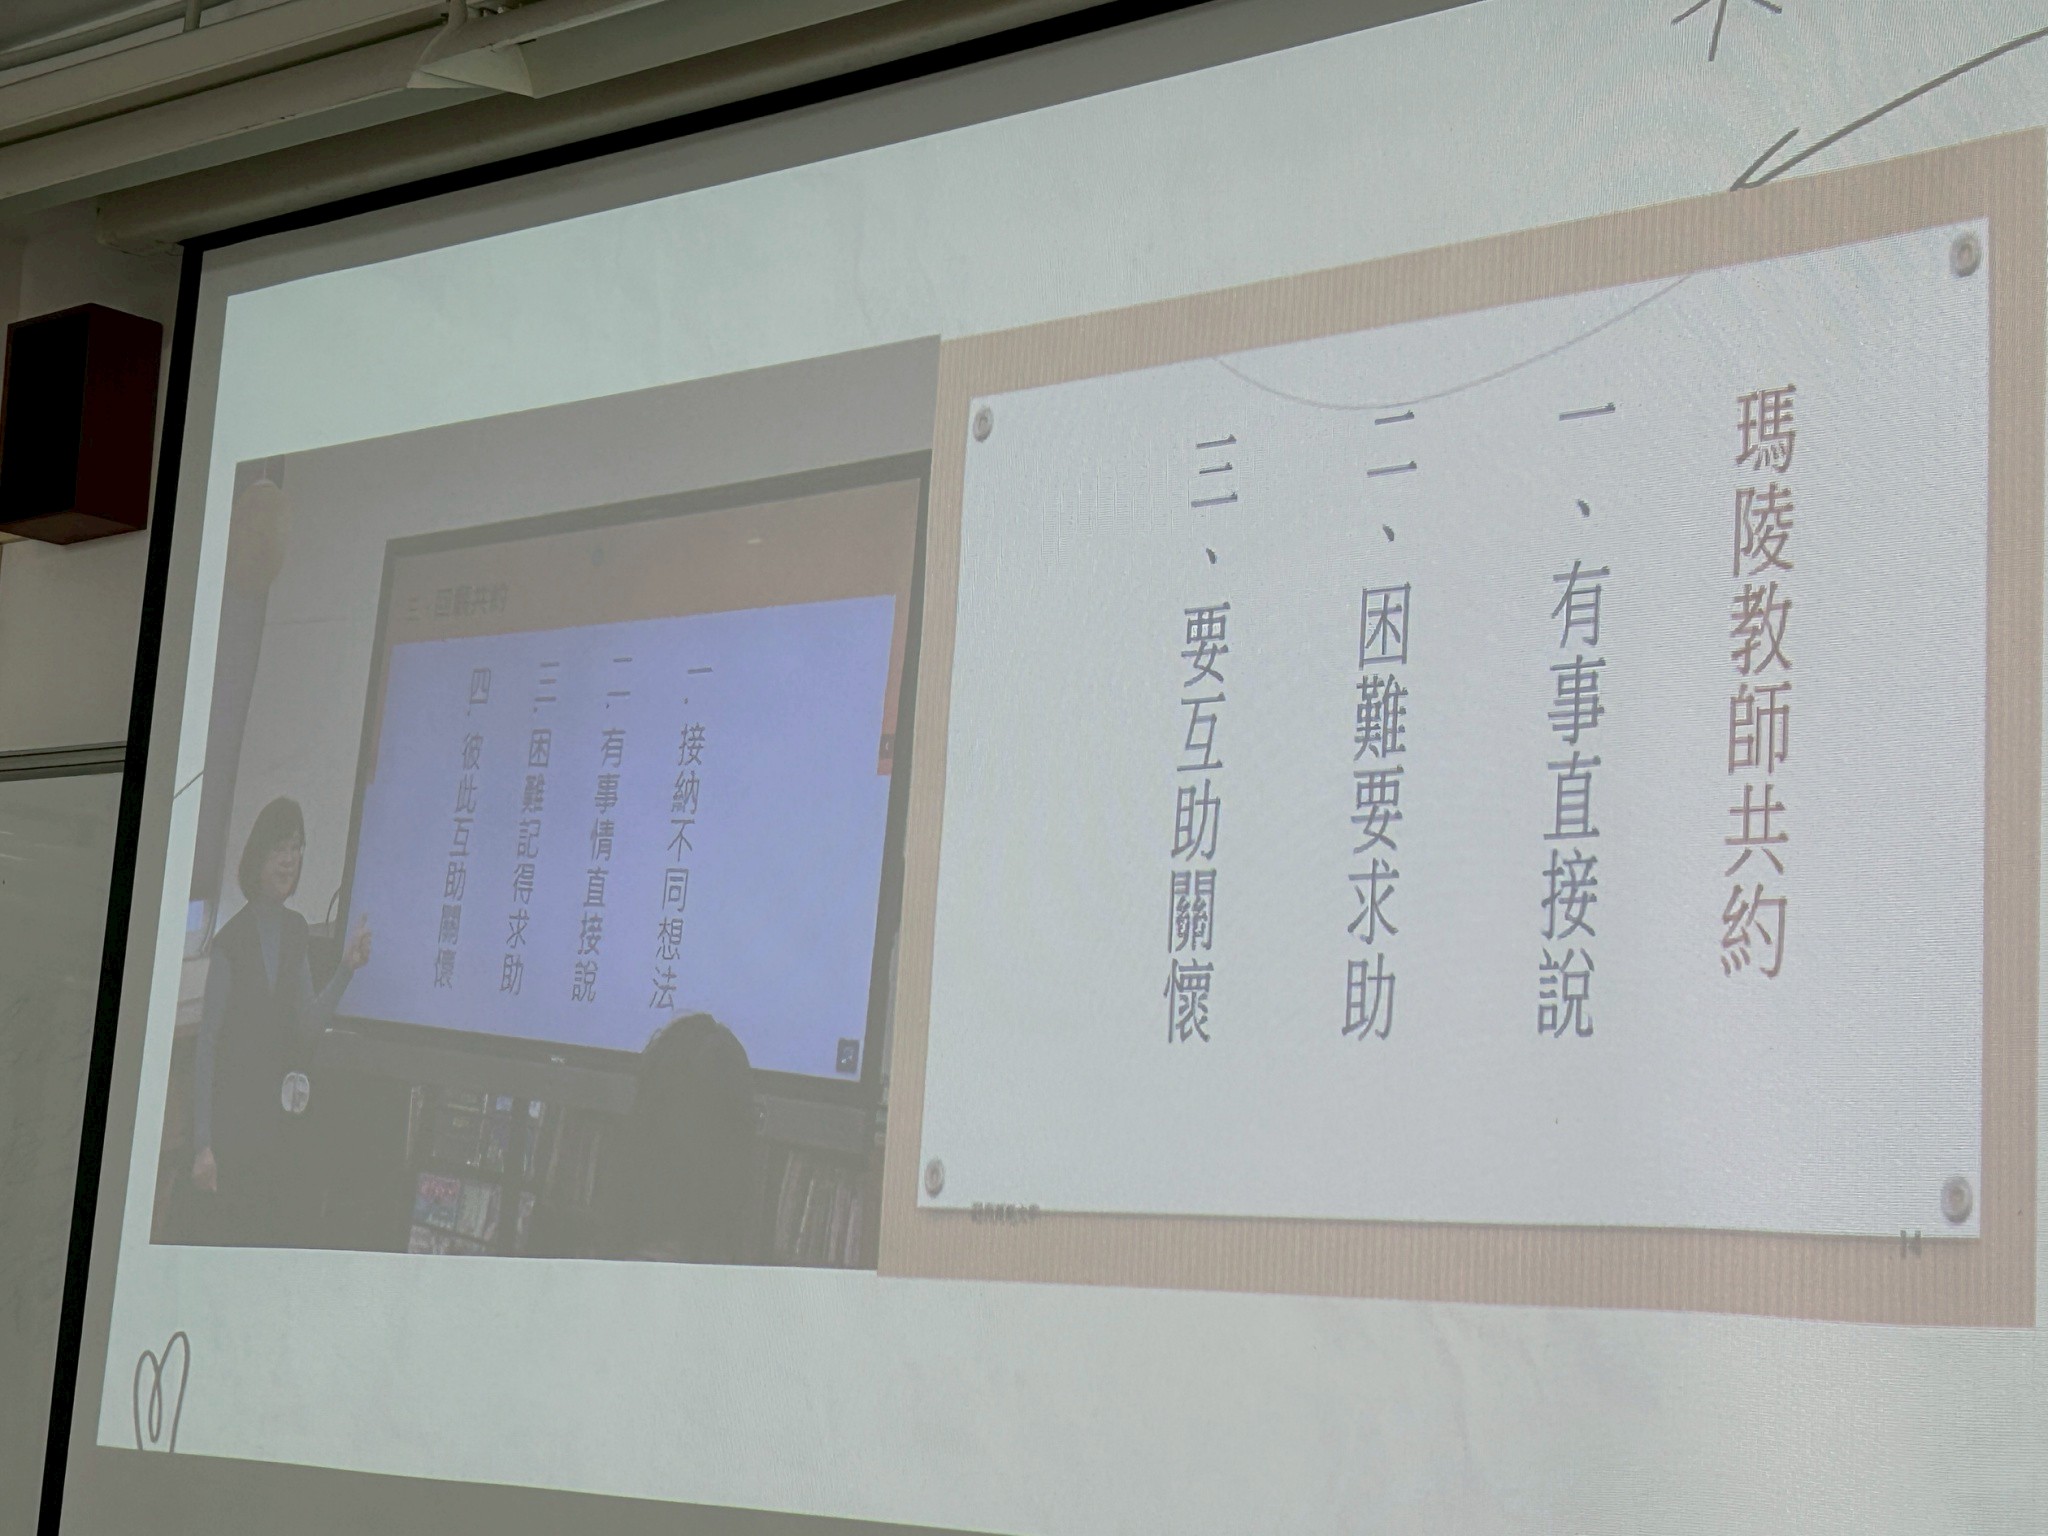 三、団體共約
一.接納不同想法
二.有事情直接說
三.困難記得求助
四.彼此互助關懷
瑪陵教師共約
一、有事直接說
二、困難要求助
三、要互助關懷
14